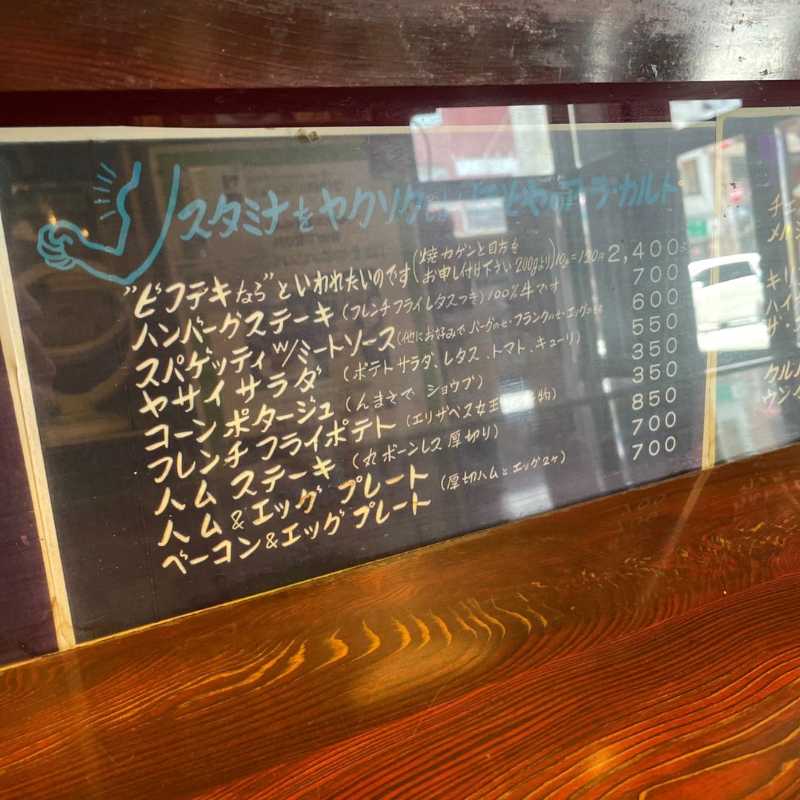 スタミナをヤクソク ラ・カルト
"ビフテキなら"といわれたいのです(焼カゲンと目方をお申し付け下さい 200gより)10g=120円 2,400
ハンバーグステーキ(フレンチフライ レタスつき)100%牛です 700
スパゲッティ w/ミートソース(他にお好みで バーグのせ・フランクのせ・エッグのせ 600
ヤサイサラダ(ポテトサラダ、レタス、トマト、キューリ) 550
コーンポタージュ(んまさで ショウブ) 350
フレンチフライポテト(エリザベス女王 物) 350
ハムステーキ(丸ボーンレス厚切り) 850
ハム&エッグプレート(厚切ハムとエッグ2ケ) 700
ベーコン&エッグプレート 700
チ
メ
キリ
ハイ
ザ・
クル
ウン